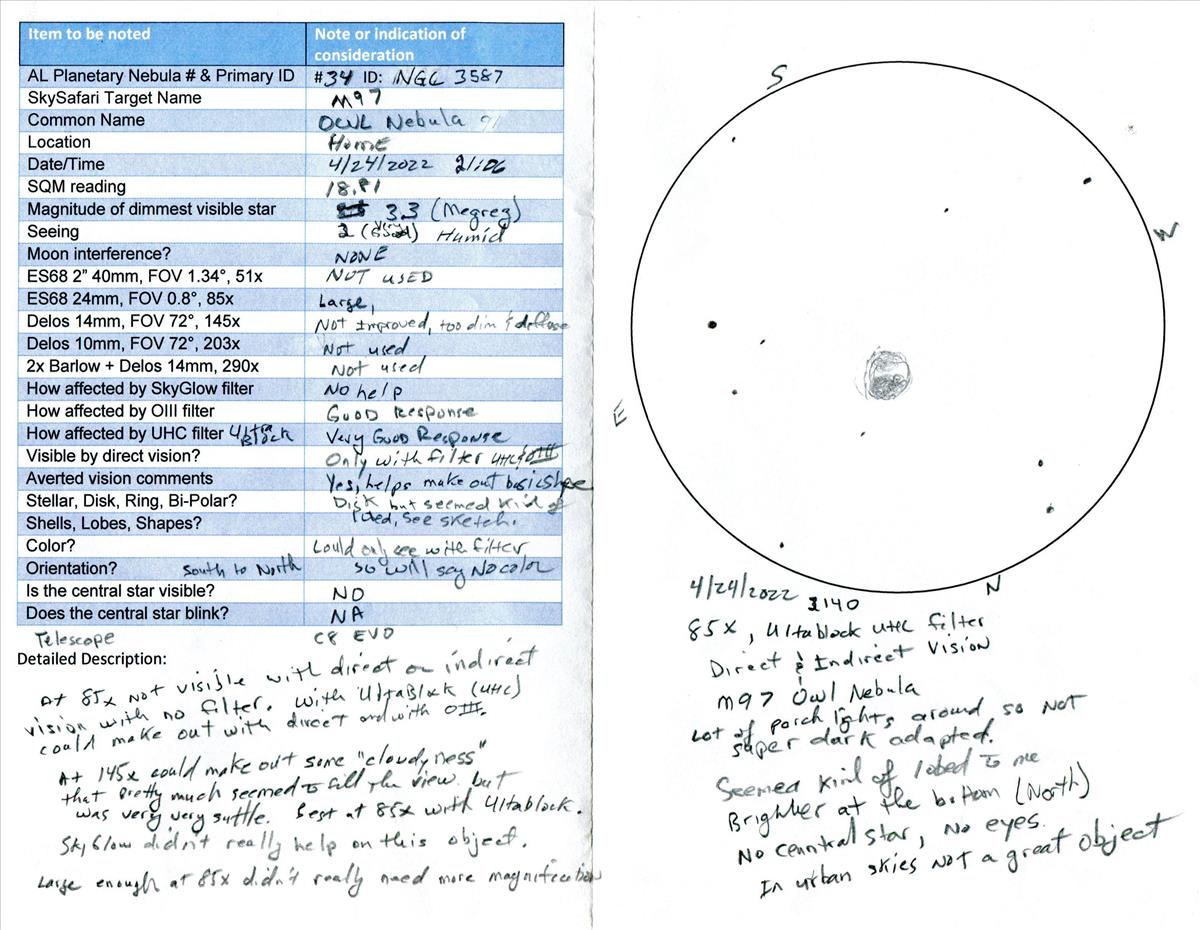 Item to be noted Note or indication of consideration
AL Planetary Nebula # & Primary ID #34 ID: NGC 3587
SkySafari Target Name M97
Common Name OWL Nebula
Location Home
Date/Time 4/24/2022 21:06
SQM reading 18.81
Magnitude of dimmest visible star 3.3 (Megrez)
Seeing 2 (Very Good) Humid
Moon interference? NONE
ES68 2” 40mm, FOV 1.34°, 51x NOT USED
ES68 24mm, FOV 0.8°, 85x Large,
Delos 14mm, FOV 72°, 145x Not Improved, too dim & diffuse
Delos 10mm, FOV 72°, 203x Not used
2x Barlow + Delos 14mm, 290x Not used
How affected by SkyGlow filter No help
How affected by OIII filter GOOD Response
How affected by UHC filter Ultra Block Very Good Response
Visible by direct vision? Only with filter UHC & OIII
Averted vision comments Yes, helps make out basic shape
Stellar, Disk, Ring, Bi-Polar? Disk but seemed kind of
Shells, Lobes, Shapes? lobed, see sketch.
Color? Could only see with filter
Orientation? South to North so will say No color
Is the central star visible? NO
Does the central star blink? NA
Telescope C8 EVO
Detailed Description:
At 85x not visible with direct or indirect
vision with no filter. With UltaBlock (UHC)
could make out with direct and with OIII.
At 145x could make out some "cloudyness"
that pretty much seemed to fill the view but
was very very suttle. Best at 85x with Ultablock.
SkyGlow didn't really help on this object.
Large enough at 85x didn't really need more magnification
S
W
E
N
4/24/2022 2140
85x, Ultablock UHC filter
Direct & Indirect Vision
M97 Owl Nebula
Lot of porch lights around so NOT
super dark adapted.
Seemed kind of lobed to me
Brighter at the bottom (North)
No cenntral star, No eyes.
In urban skies not a great object